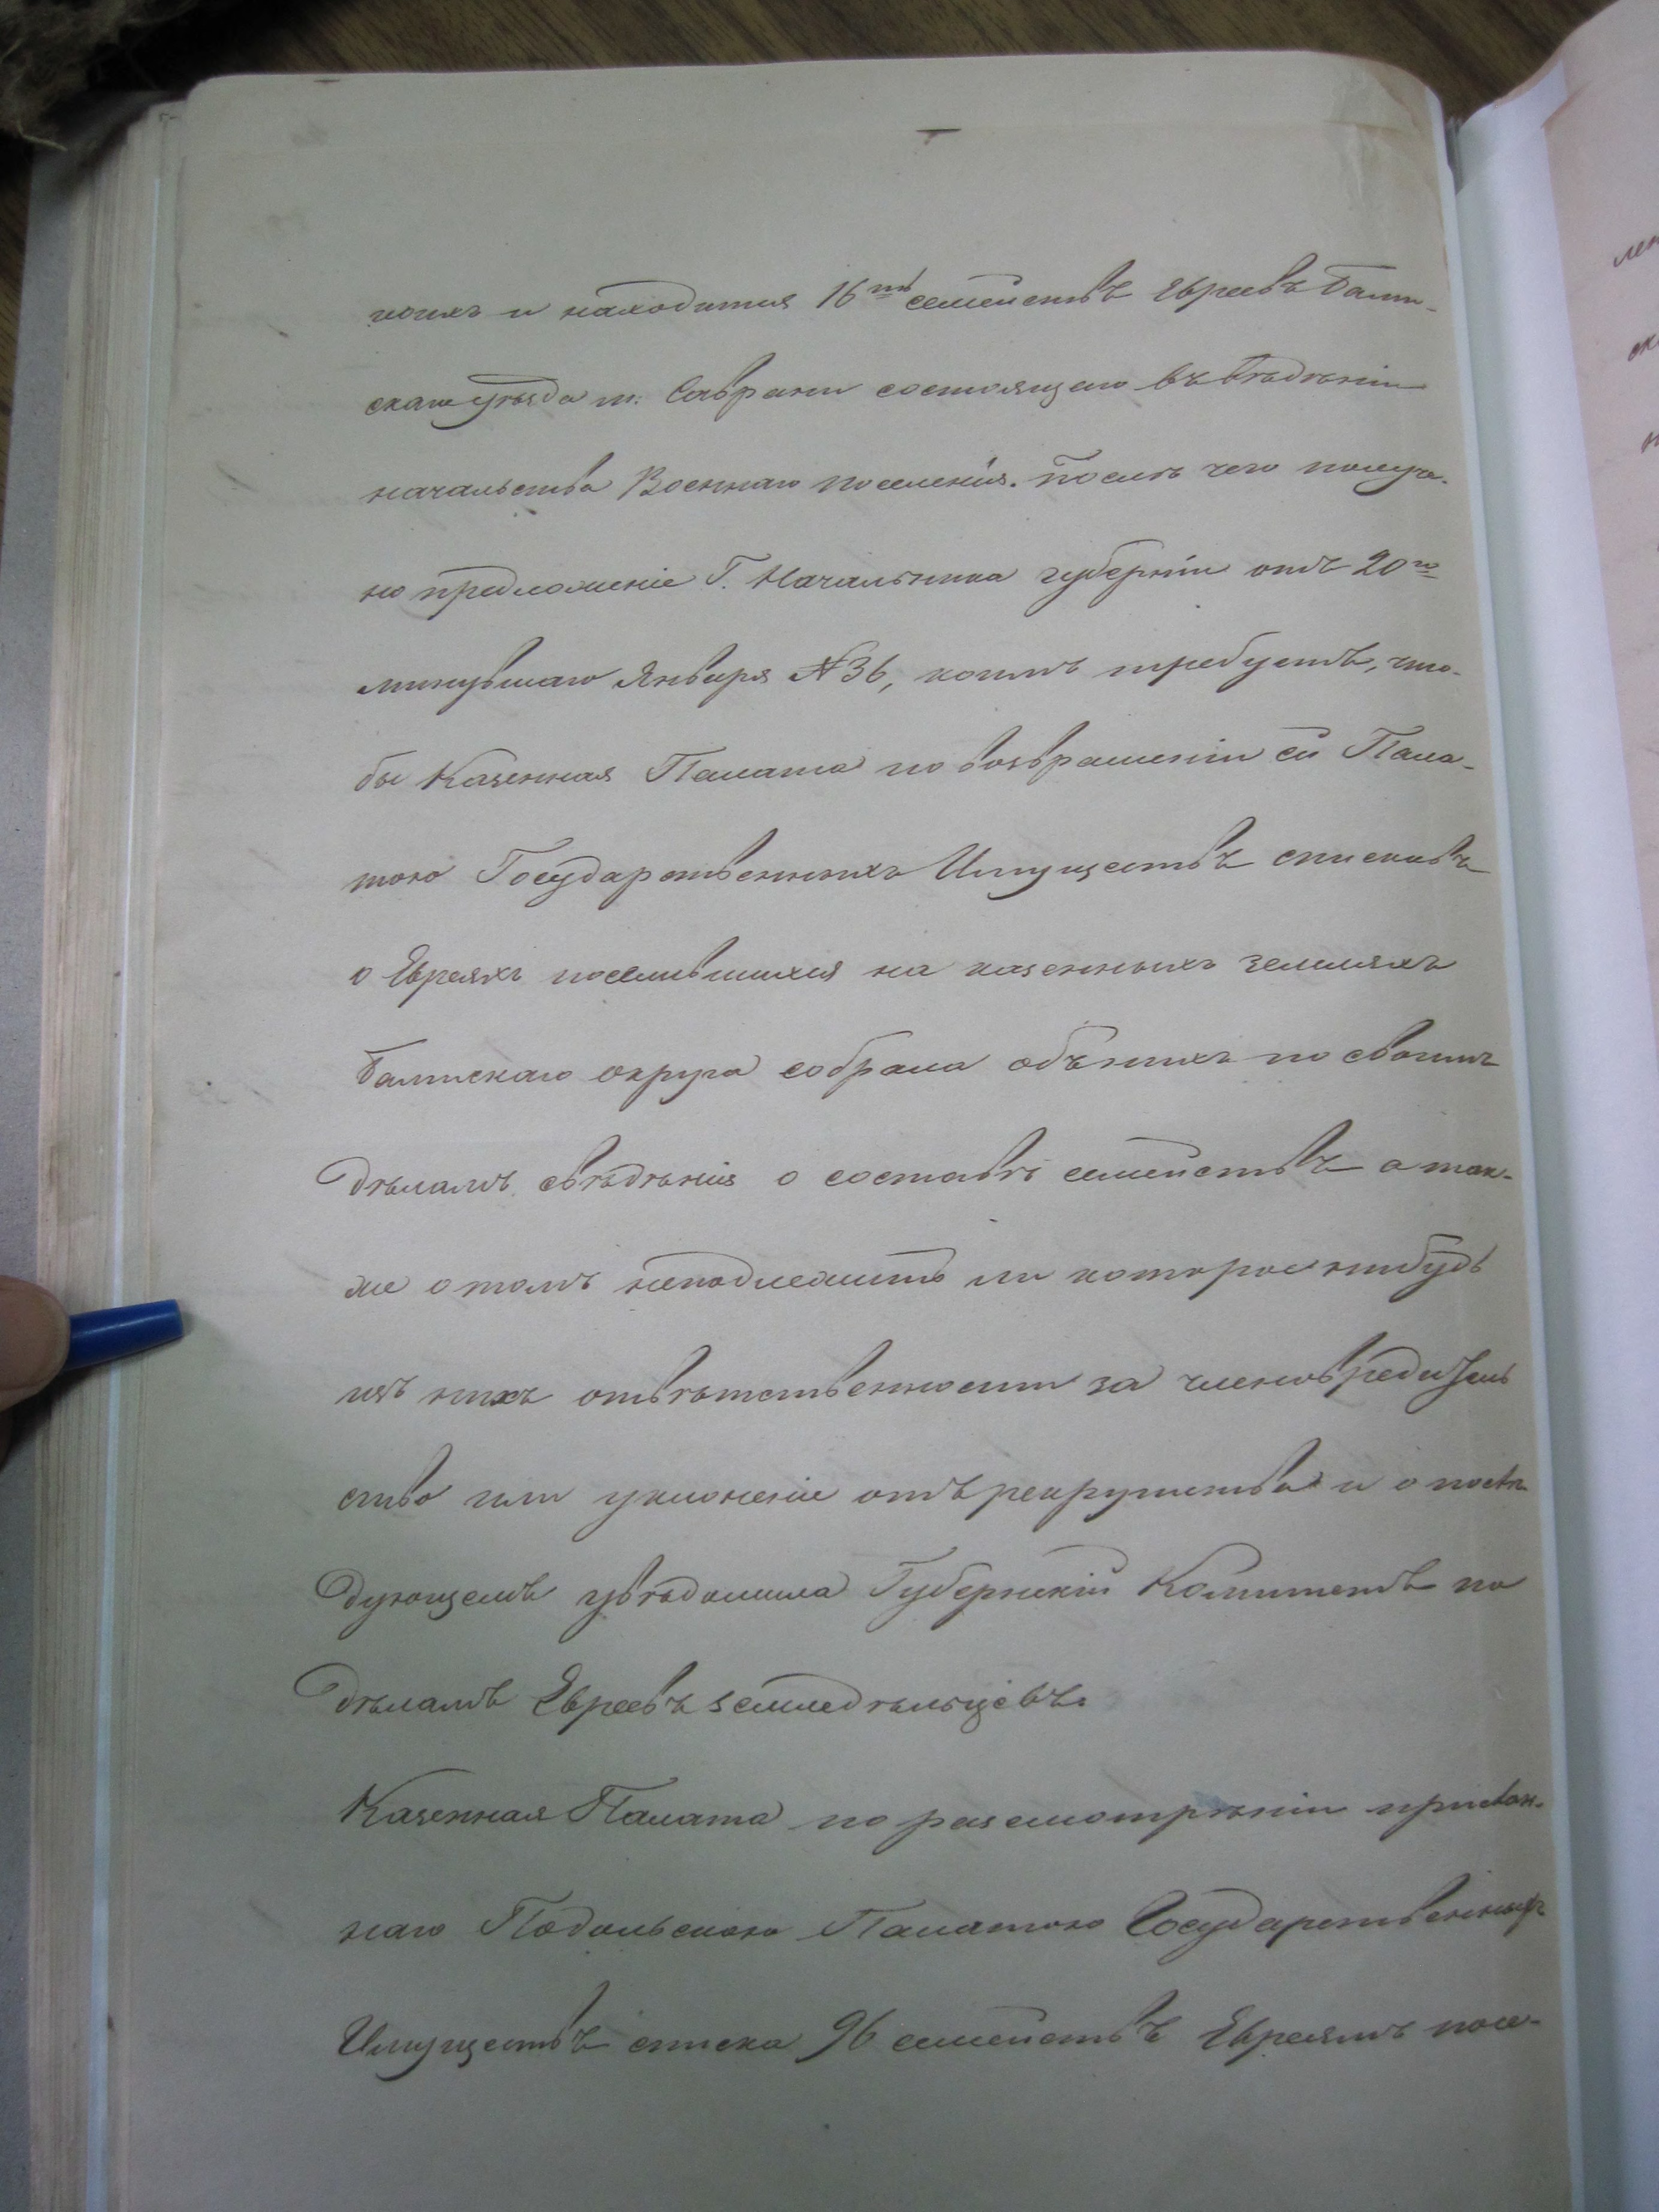 коихъ и находится 16ть семействъ Евреевъ Балт-
скаго уѣзда м: Саврани состоящаго въ вѣдѣніи
начальства Военнаго поселенія. Послѣ чего получе-
но предложеніе Г. Начальника губерніи отъ 20го
минувшаго Января №36, коимъ требуетъ, что-
бы Казенная Палата по возвращеніи ей Пала-
тою Государственныхъ Имуществъ списковъ
о Евреяхъ поселившихся на казенныхъ земляхъ
Балтскаго округа собрала объ нихъ по своимъ
дѣламъ свѣдѣнія о составѣ семействъ а так-
же о томъ неподлежитъ ли которое нибудь
изъ нихъ отвѣтственности за членовредитель
ство или уклоненіе отъ рекрутства и о послѣ
дующемъ увѣдомила Губернскій Комитетъ по
дѣламъ Евреевъ земледѣльцевъ.
Казенная Палата по разсмотрѣніи прислан-
наго Подольскою Палатою Государственныхъ
Имуществъ списка 96 семействъ Евреямъ посе-